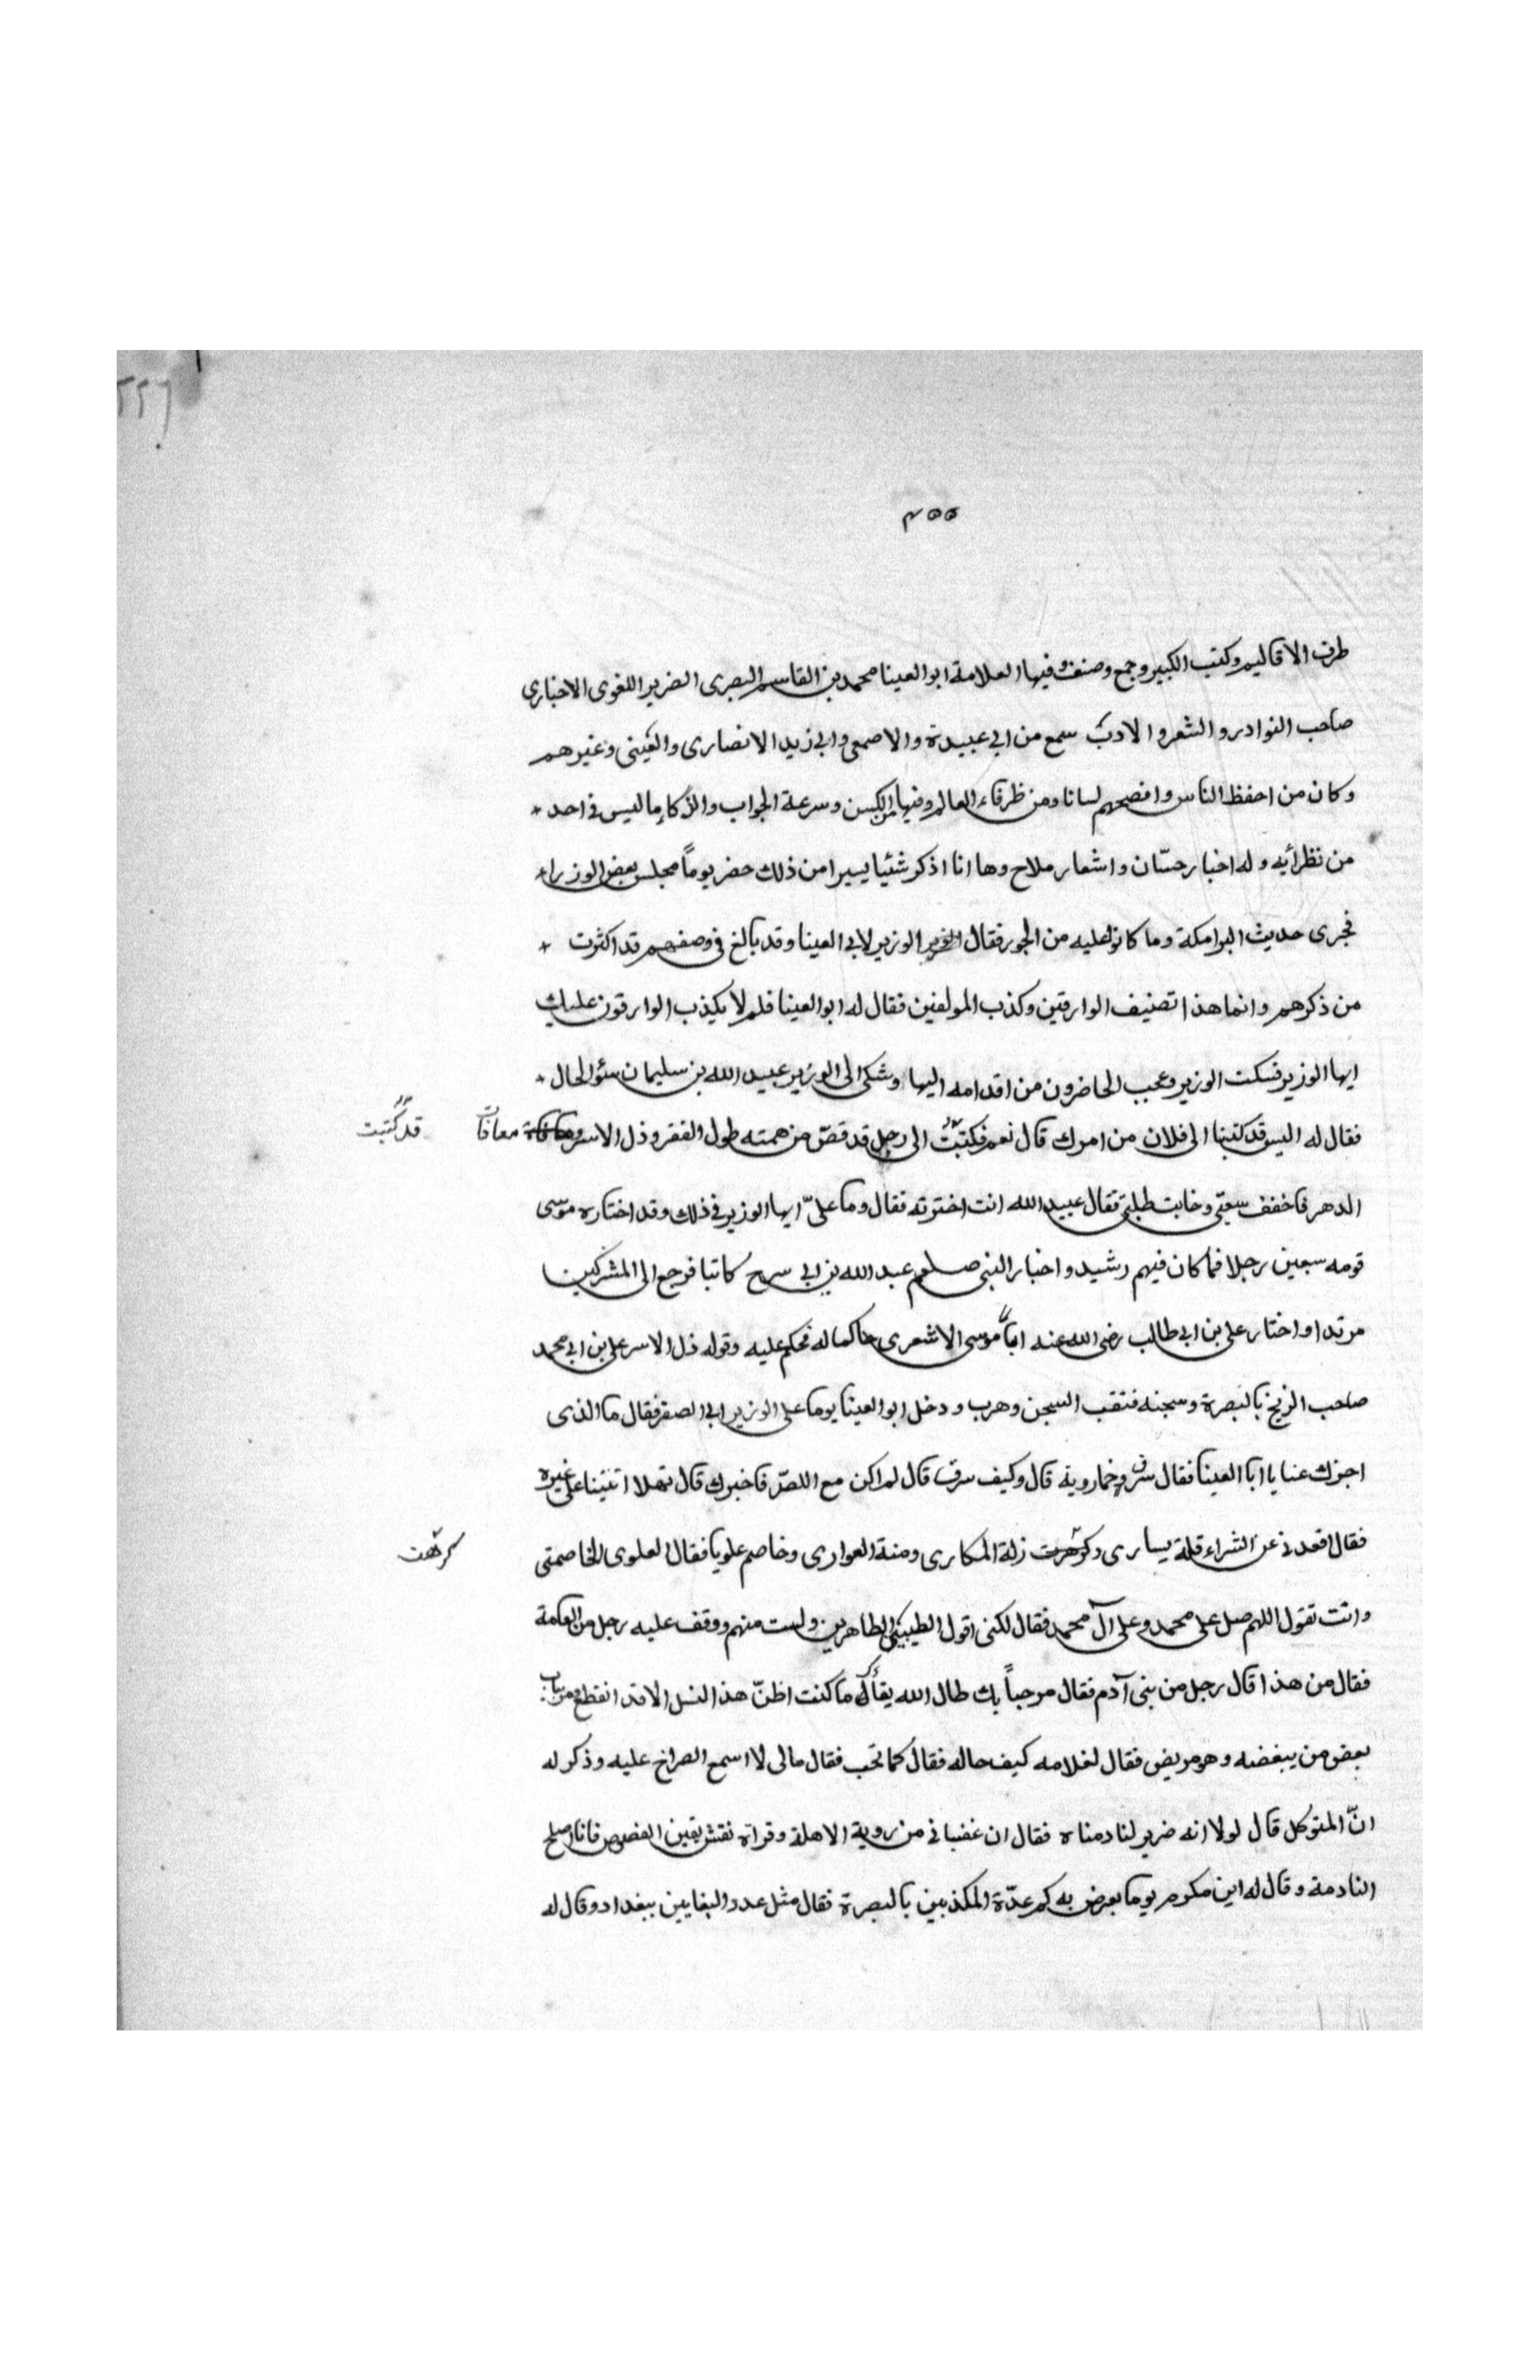 ٢٢٦
٤٥٥
طرف الاقاليم وكتب الكبير وجمع وصنف وفيها العلامة ابو العينا محمد بن القاسم البصرى الضرير اللغوى الاخبارى
صاحب النوادر و الشعر و الادب سمع من ابى عبيدة والاصمعى وابى زيد الانصارى والعينى وغيرهم
وكان من احفظ الناس وافصحهم لسانا ومن ظرفاء العالم وفيها من الكسن وسرعة الجواب والذكاء ما ليس فى احد
من نظرأيه وله اخبار حسّان واشعار ملاح وها انا اذكر شئيا يسيرا من ذلك حضر يوماً مجلس بعض الوزراء
فجرى حديث البرامكة وما كانوا عليه من الجور فقال الوزير لابى العينا وقد بالغ فى وصفهم قد اكثرت
من ذكرهم وانما هذا تصنيف الوارقين وكذب المولفين فقال له ابو العينا فلم لا يكذب الوارقون عليك
ايها الوزير فسكت الوزير وعجب الحاضرون من اقدامه اليها وشكى الى الوزير عبيد الله بن سليمان سئو الحال
فقال له اليس قد كتبنا الى فلان من امرك قال نعم فكتبتُ الى رجل قد قصّ من همته طول الفقر وذل الاسر معافات قد كتبت
الدهر فاخفف سعيّى وخابت طلبتى فقال عبيد الله انت اخترته فقال وما علىّ ايها الوزير فى ذلك وقد اختار موسى
قومه سبعين رجلا فما كان فيهم رشيد و اخبار النبى صلعم عبد الله بن ابى سرح كاتبا فرجع الى المشركين
مرتدا واختار على بن ابى طالب رضى الله عنه اباً موسى الاشعرى حاكما له فحكم عليه وقوله ذل الاسر على بن ابى محمد
صاحب الزنج بالبصرة وسجنه فنقب السجن وهرب ودخل ابو العينا يوما على الوزير ابى الصقر فقال ما الذى
اجرك عنا يا ابا العينا فقال سرق وخمارويه قال وكيف سرقت قال لم اكن مع اللصّ فاخبرك قال تهلا اتيتنا على غيره
فقال اقعدنى عن الشراء قلة يسارى وكرهت زلة المكارى ومنة العوارى وخاصم علويا فقال العلوى لم تخاصمنى كرهت
وانت تقول اللهم صل على محمد وعلى آل محمد فقال لكنى اقول الطيبين الطاهرين ولست منهم ووقف عليه رجل من العامة
فقال من هذا قال رجل من بنى آدم فقال مرحباً بك طال الله بقأك ما كنت اظنّ هذا النسل الا قد انقطع ومر بباب
بعض من يبغضه وهو مريض فقال لغلامه كيف حاله فقال كما تحب فقال مالى لا اسمع الصراخ عليه وذكر له
انّ المتوكل قال لولا انه ضرير لنادمناه فقال ان عفبانى من روية الاهلة وقراة نقش يقين الفصوص فانا اصلح
النادمة وقال له ابن مكرم يوما يعرض به كم عدّة المكذبين بالبصرة فقال مثل عدد البغايين ببغداد وقال له